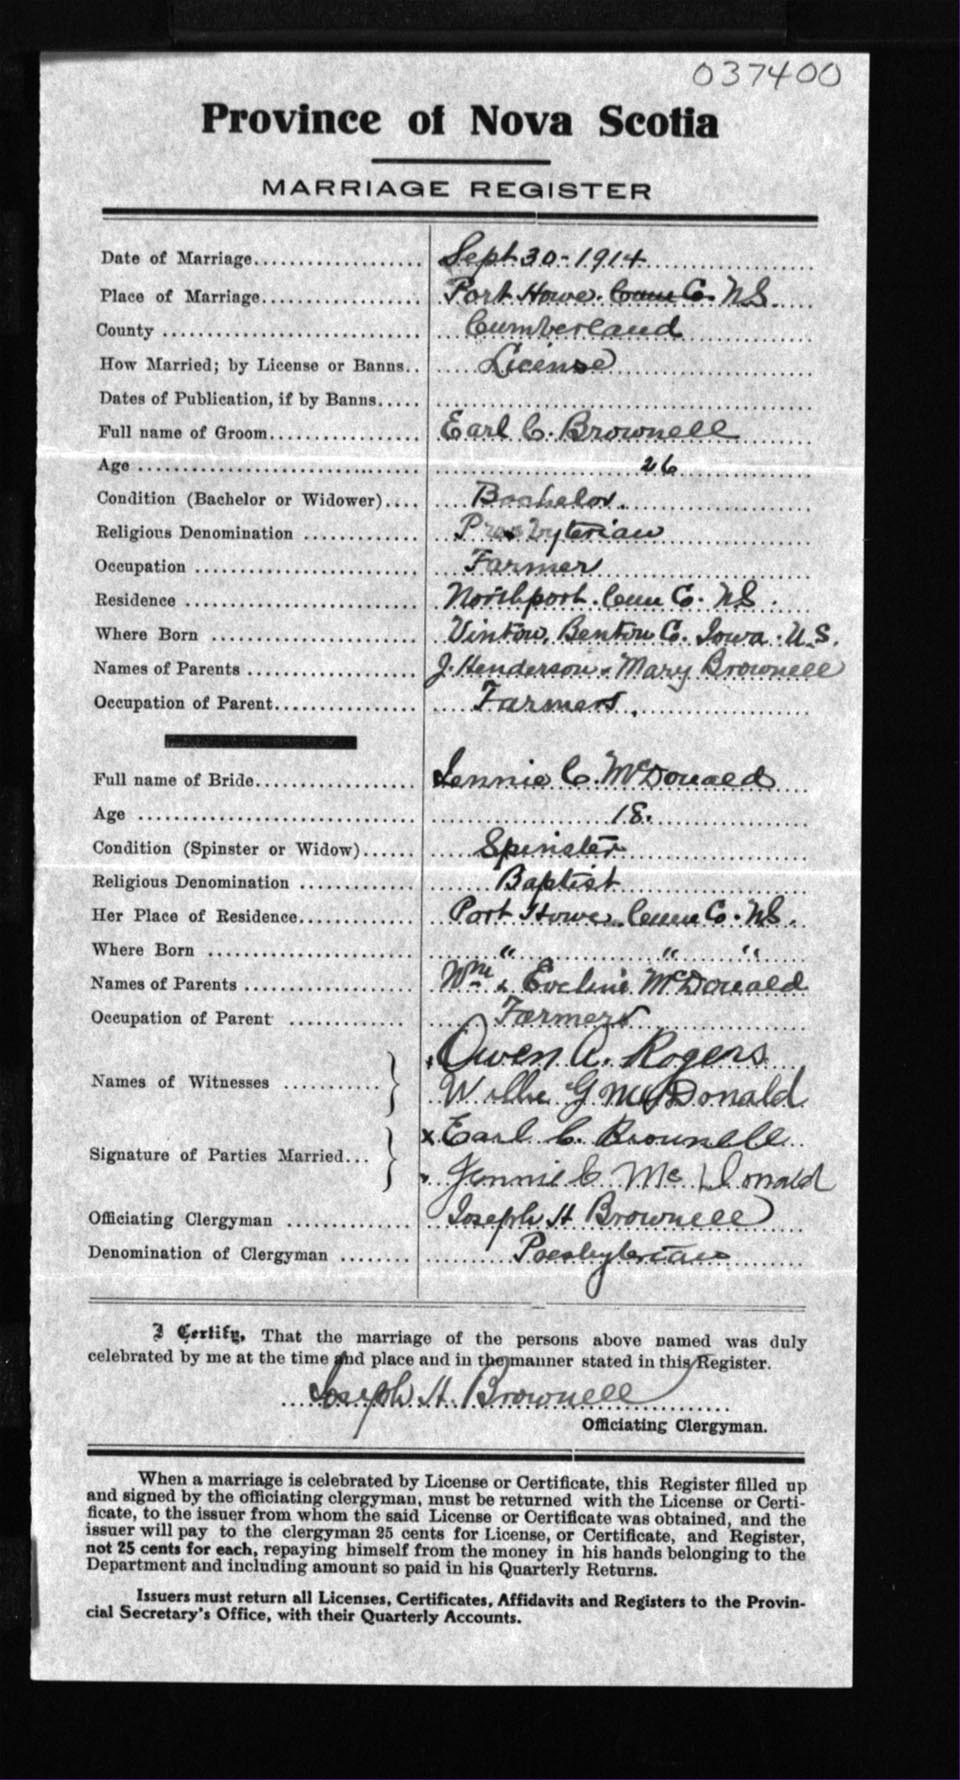 037400
Province of Nova Scotia
MARRIAGE REGISTER
Date of Marriage.................... Sept 30 - 1914
Place of Marriage.................. Port Howe. Cum Co. NS.
County ............................ Cumberland
How Married; by License or Banns.. License
Dates of Publication, if by Banns.....
Full name of Groom................. Earl C. Brownell
Age ............................... 26
Condition (Bachelor or Widower).... Bachelor.
Religious Denomination ............ Presbyterian
Occupation ........................ Farmer
Residence ......................... Northport. Cum Co. NS.
Where Born ....................... Vinton, Benton Co. Iowa. U.S.
Names of Parents .................. J. Henderson & Mary Brownell
Occupation of Parent............... Farmers.
Full name of Bride.................. Jennie C. McDonald
Age ............................... 18.
Condition (Spinster or Widow)...... Spinster
Religious Denomination ............ Baptist
Her Place of Residence............. Port Howe. Cum Co. NS.
Where Born ....................... " " "
Names of Parents .................. Wm & Eveline McDonald
Occupation of Parent .............. Farmers
Names of Witnesses ............ } Owen A. Rogers
Willie G McDonald
Signature of Parties Married... } x Earl C. Brownell
Jennie C McDonald
Officiating Clergyman ............. Joseph H Brownell
Denomination of Clergyman ........ Presbyterian
I Certify, That the marriage of the persons above named was duly
celebrated by me at the time and place and in the manner stated in this Register.
Joseph H. Brownell
Officiating Clergyman.
When a marriage is celebrated by License or Certificate, this Register filled up
and signed by the officiating clergyman, must be returned with the License or Certi-
ficate, to the issuer from whom the said License or Certificate was obtained, and the
issuer will pay to the clergyman 25 cents for License, or Certificate, and Register,
not 25 cents for each, repaying himself from the money in his hands belonging to the
Department and including amount so paid in his Quarterly Returns.
Issuers must return all Licenses, Certificates, Affidavits and Registers to the Provin-
cial Secretary's Office, with their Quarterly Accounts.